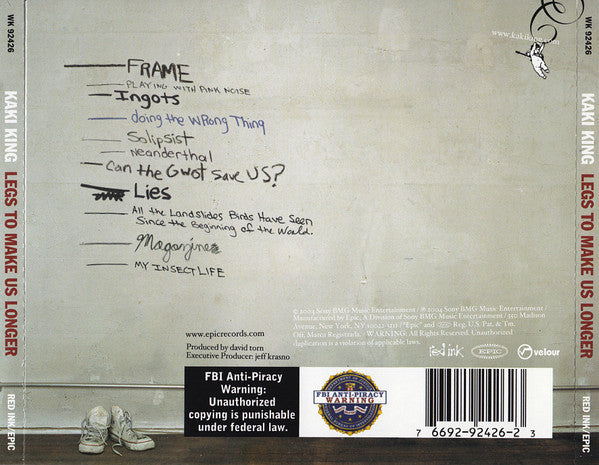 WK 92426
KAKI KING LEGS TO MAKE US LONGER
RED INK/EPIC
www.kakiking.com
FRAME
PLAYING WITH PINK NOISE
Ingots
doing the WRong Thing
Solipsist
Neanderthal
Can the GwoT Save US?
Lies
All the Landslides Birds Have Seen
Since the Beginning of the World.
Magazine
MY INSECT LIFE
© 2004 Sony BMG Music Entertainment / ℗ 2004 Sony BMG Music Entertainment /
Manufactured by Epic, A Division of Sony BMG Music Entertainment / 550 Madison
Avenue, New York, NY 10022-3211 /"Epic" and Reg. U.S. Pat. & Tm.
Off. Marca Registrada. / WARNING: All Rights Reserved. Unauthorized
duplication is a violation of applicable laws.
www.epicrecords.com
Produced by david torn
Executive Producer: jeff krasno
red ink
EPIC
velour
FBI Anti-Piracy
Warning:
Unauthorized
copying is punishable
under federal law.
FBI ANTI-PIRACY
WARNING
7 66692-92426-2 3
WK 92426
KAKI KING LEGS TO MAKE US LONGER
RED INK/EPIC